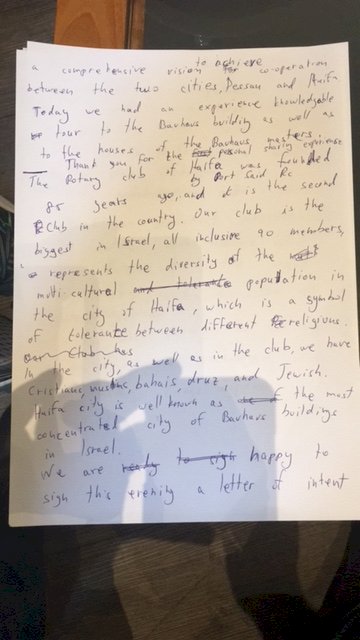 to achieve
a comprehensive vision for co-operation
between the two cities, Dessau and Haifa
Today we had an experience knowledgable
tour to the Bauhaus building as well as
to the houses of the Bauhaus masters.
Thank you for the personal sharing experience
The Rotary club of Haifa was founded
by Port Said Rc
85 years ago, and it is the second
Club in the country. Our club is the
biggest in Israel, all inclusive 90 members,
represents the diversity of the
multi-cultural and tolerate population in
the city of Haifa, which is a symbol
of tolerance between different religions.
Our Club has
In the city, as well as in the club, we have
Cristians, muslims, bahais, druz, and Jewish.
Haifa city is well known as the most
concentrated city of Bauhaus buildings
in Israel.
We are ready to sign happy to
sign this evenig a letter of intent